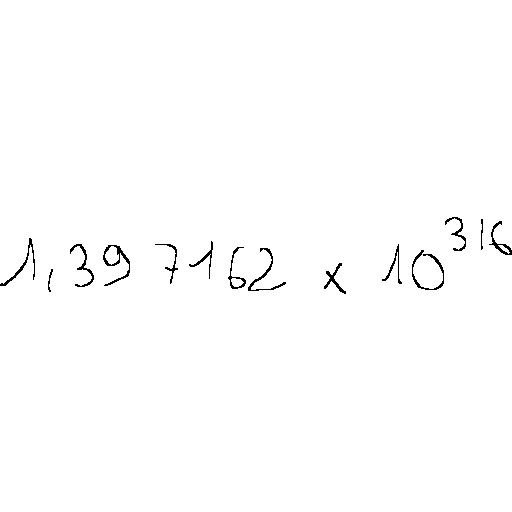 1,397162 x 10^316